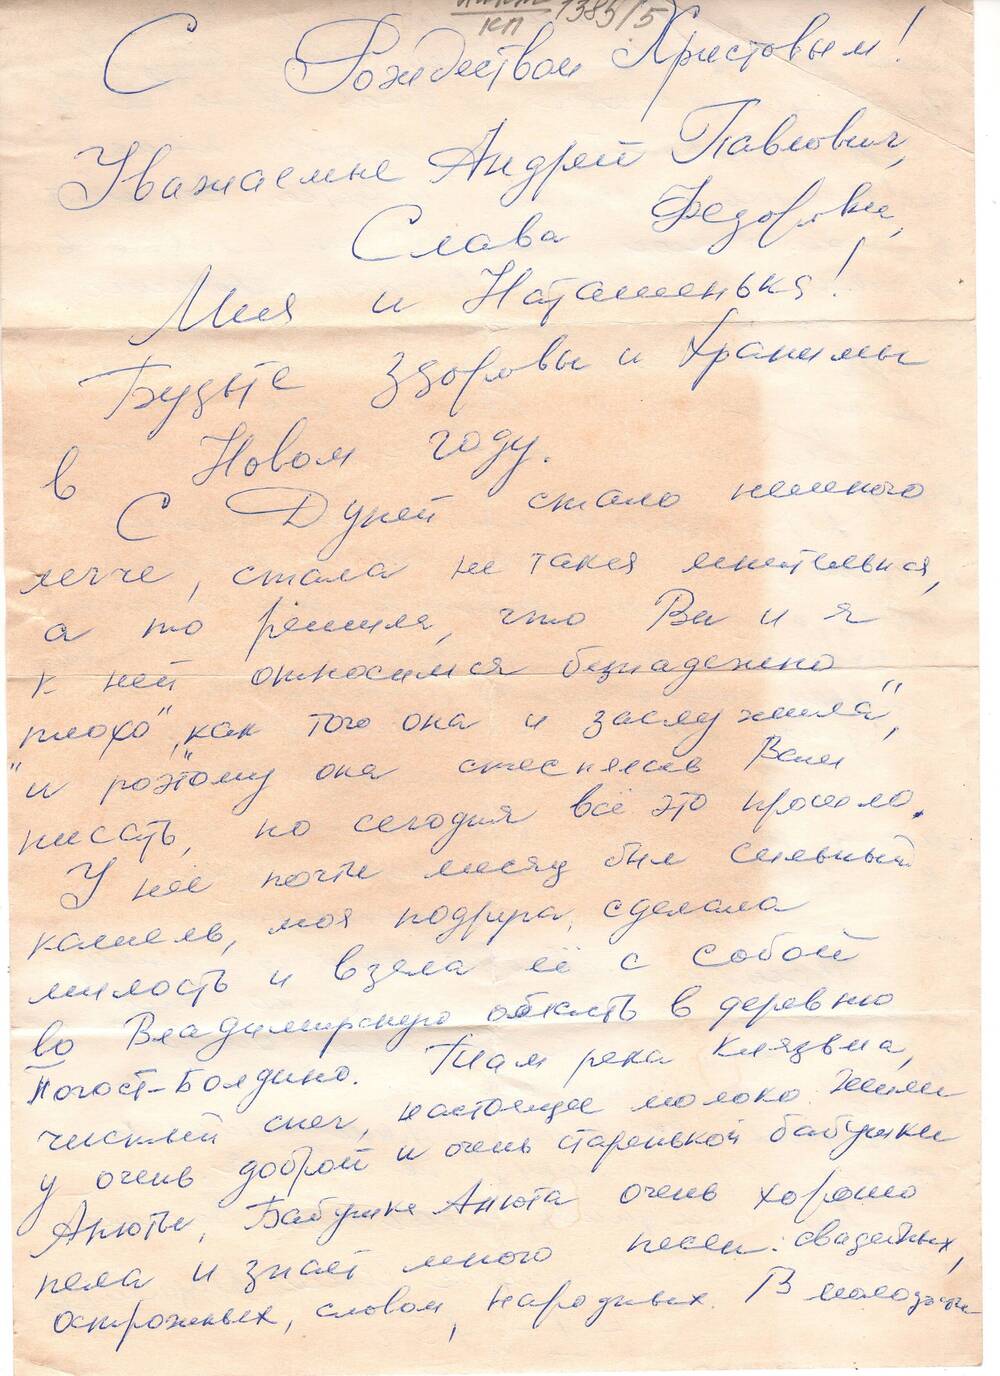 КП 1385/5
С Рождеством Христовым!
Уважаемые Андрей Павлович,
Слава Федоровна,
Мия и Наташенька!
Будьте здоровы и хранимы
в Новом году.
С Дуней стало немного
легче, стала не такая мнительная,
а то решила, что Вы и я
к ней относимся безнадежно
плохо", как того она и заслужила",
"и поэтому" она стеснялась Вам
писать, но сегодня всё это прошло.
У неё почти месяц был сильный
кашель, моя подруга, сделала
милость и взяла её с собой
во Владимирскую область в деревню
Погост-Болдино. Там река Князвка,
чистый снег, настоящее молоко. Жили
у очень доброй и очень старенькой бабушки
Анюты, Бабушка Анюта очень хорошо
пела и знает много песен: свадебных,
острожных, словом, народных. В молодости